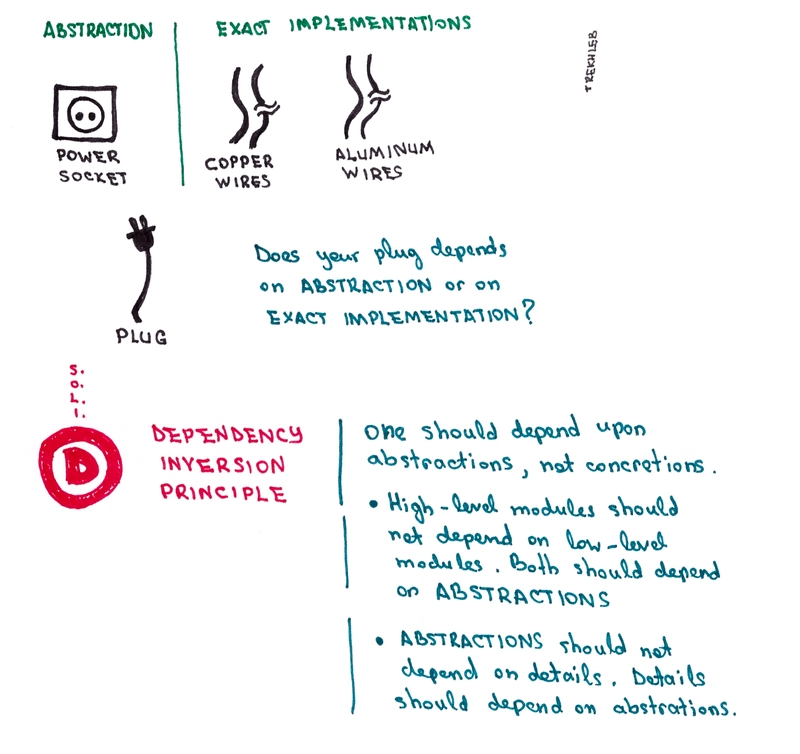 ABSTRACTION
EXACT IMPLEMENTATIONS
TREKHLEB
POWER
SOCKET
COPPER
WIRES
ALUMINUM
WIRES
Does your plug depends
on ABSTRACTION or on
EXACT IMPLEMENTATION?
PLUG
S.
O.
L.
I.
D
DEPENDENCY
INVERSION
PRINCIPLE
One should depend upon
abstractions, not concretions.
• High-level modules should
not depend on low-level
modules. Both should depend
on ABSTRACTIONS
• ABSTRACTIONS should not
depend on details. Details
should depend on abstrations.